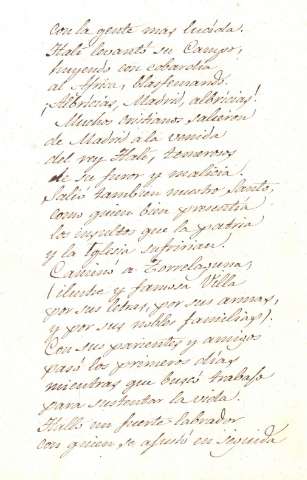 con la gente mas lucida.
Hali levantó su Campo,
huyendo con cobardia
al Africa, blasfemando.
¡Albricias, Madrid, albricias!
Muchos cristianos salieron
de Madrid á la venida
del rey Hali, temerosos
de su furor y malicia
Salió tambien nuestro Santo,
como quien bien presentia
los insultos que la patria
y la Iglesia sufririan.
Camino a Torrelaguna,
(ilustre y famosa Villa
por sus letras, por sus armas,
y por sus nobles familias).
Con sus parientes y amigos
pasó los primeros dias
mientras que buscó trabajo
para sustentar la vida.
Halló un fuerte labrador
con quien se ajustó en seguida